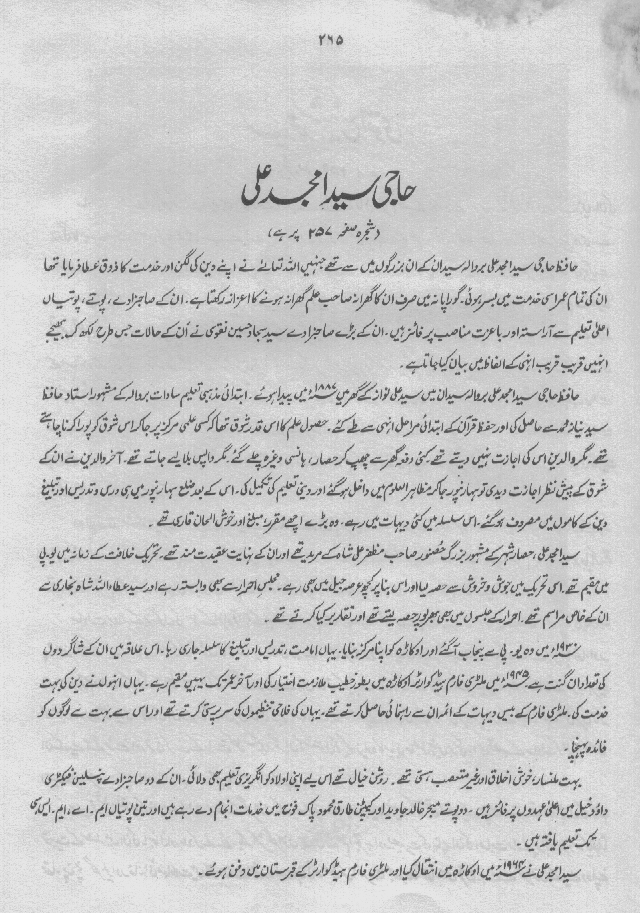 ۲۶۵
حاجی سید امجد علی
(شجرہ صفحہ ۲۵۷ پر ہے)
حافظ حاجی سید امجد علی بروالہ سیدان کے ان بزرگوں میں سے تھے جنہیں اللہ تعالےٰ نے اپنے دین کی لگن اور خدمت کا ذوق عطا فرمایا تھا
ان کی تمام عمر اسی خدمت میں بسر ہوئی۔ گوراپانہ میں صرف ان کا گھرانہ صاحب علم گھرانہ ہونے کا اعزاز رکھتا ہے۔ ان کے صاحبزادے، پوتے، پوتیاں
اعلیٰ تعلیم سے آراستہ اور باعزت مناصب پر فائز ہیں۔ ان کے بڑے صاحبزادے سید سجاد حسین نقوی نے ان کے حالات جس طرح لکھ کر بھیجے
انہیں قریب قریب انہی کے الفاظ میں بیان کیا جاتا ہے۔
حافظ حاجی سید امجد علی بروالہ سیدان میں سید علی نواز کے گھر میں ۱۸۸۷ء میں پیدا ہوئے۔ ابتدائی مذہبی تعلیم سادات بروالہ کے مشہور استاد حافظ
سید نیاز محمد سے حاصل کی اور حفظ قرآن کے ابتدائی مراحل انہی سے طے کئے۔ حصول علم کا اس قدر شوق تھا کہ کسی علمی مرکز پر جا کر اس شوق کو پورا کرنا چاہتے
تھے۔ مگر والدین اس کی اجازت نہیں دیتے تھے۔ کئی دفعہ گھر سے چھپ کر حصار، ہانسی وغیرہ چلے گئے۔ مگر واپس بلا لیے جاتے تھے۔ آخر والدین نے ان کے
شوق کے پیش نظر اجازت دیدی تو سہارنپور جا کر مظاہر العلوم میں داخل ہو گئے اور دینی تعلیم کی تکمیل کی۔ اس کے بعد ضلع سہارنپور میں ہی درس و تدریس اور تبلیغ
دین کے کاموں میں مصروف ہو گئے۔ اس سلسلہ میں کئی دیہات میں رہے۔ وہ بڑے اچھے مقرر، مبلغ اور خوش الحان قاری تھے۔
سید امجد علی، حصار شہر کے مشہور بزرگ حضور صاحب مظفر علی شاہ کے مرید تھے اور ان کے نہایت عقیدت مند تھے۔ تحریک خلافت کے زمانہ میں یو۔پی
میں مقیم تھے۔ اس تحریک میں جوش و خروش سے حصہ لیا اور اس بنا پر کچھ عرصہ جیل میں بھی رہے۔ مجلس احرار سے بھی وابستہ رہے اور سید عطاء اللہ شاہ بخاری سے
ان کے خاص مراسم تھے۔ احرار کے جلسوں میں بھی بھرپور حصہ لیتے تھے اور تقاریر کیا کرتے تھے۔
میں وہ یو۔ پی سے پنجاب آگئے اور اوکاڑہ کو اپنا مرکز بنایا۔ یہاں امامت، تدریس اور تبلیغ کا سلسلہ جاری رہا۔ اس علاقہ میں ان کے شاگردوں
کی تعداد ان گنت ہے۔ ۱۹۴۵ء میں ملٹری فارم ہیڈ کوارٹر اوکاڑہ میں بطور خطیب ملازمت اختیار کی اور آخر عمر تک یہیں مقیم رہے۔ یہاں انہوں نے دین کی بہت
خدمت کی۔ ملٹری فارم کے بیس دیہات کے ائمہ ان سے راہنمائی حاصل کرتے تھے۔ یہاں کی فلاحی تنظیموں کی سرپرستی کرتے تھے اور اس سے بہت سے لوگوں کو
فائدہ پہنچا۔
بہت ملنسار، خوش اخلاق اور غیر متعصب ہستی تھے۔ روشن خیال تھے اس لیے اپنی اولاد کو انگریزی تعلیم بھی دلائی۔ ان کے دو صاحبزادے پنسلین فیکٹری
داؤد خیل میں اعلیٰ عہدوں پر فائز ہیں۔ دو پوتے میجر خالد جاوید اور کیپٹن طارق محمود پاک فوج میں خدمات انجام دے رہے ہیں اور تین پوتیاں ایم۔اے، ایم۔ایس سی
تک تعلیم یافتہ ہیں۔
سید امجد علی نے ۱۹۶۲ء میں اوکاڑہ میں انتقال کیا اور ملٹری فارم ہیڈ کوارٹر کے قبرستان میں دفن ہوئے۔